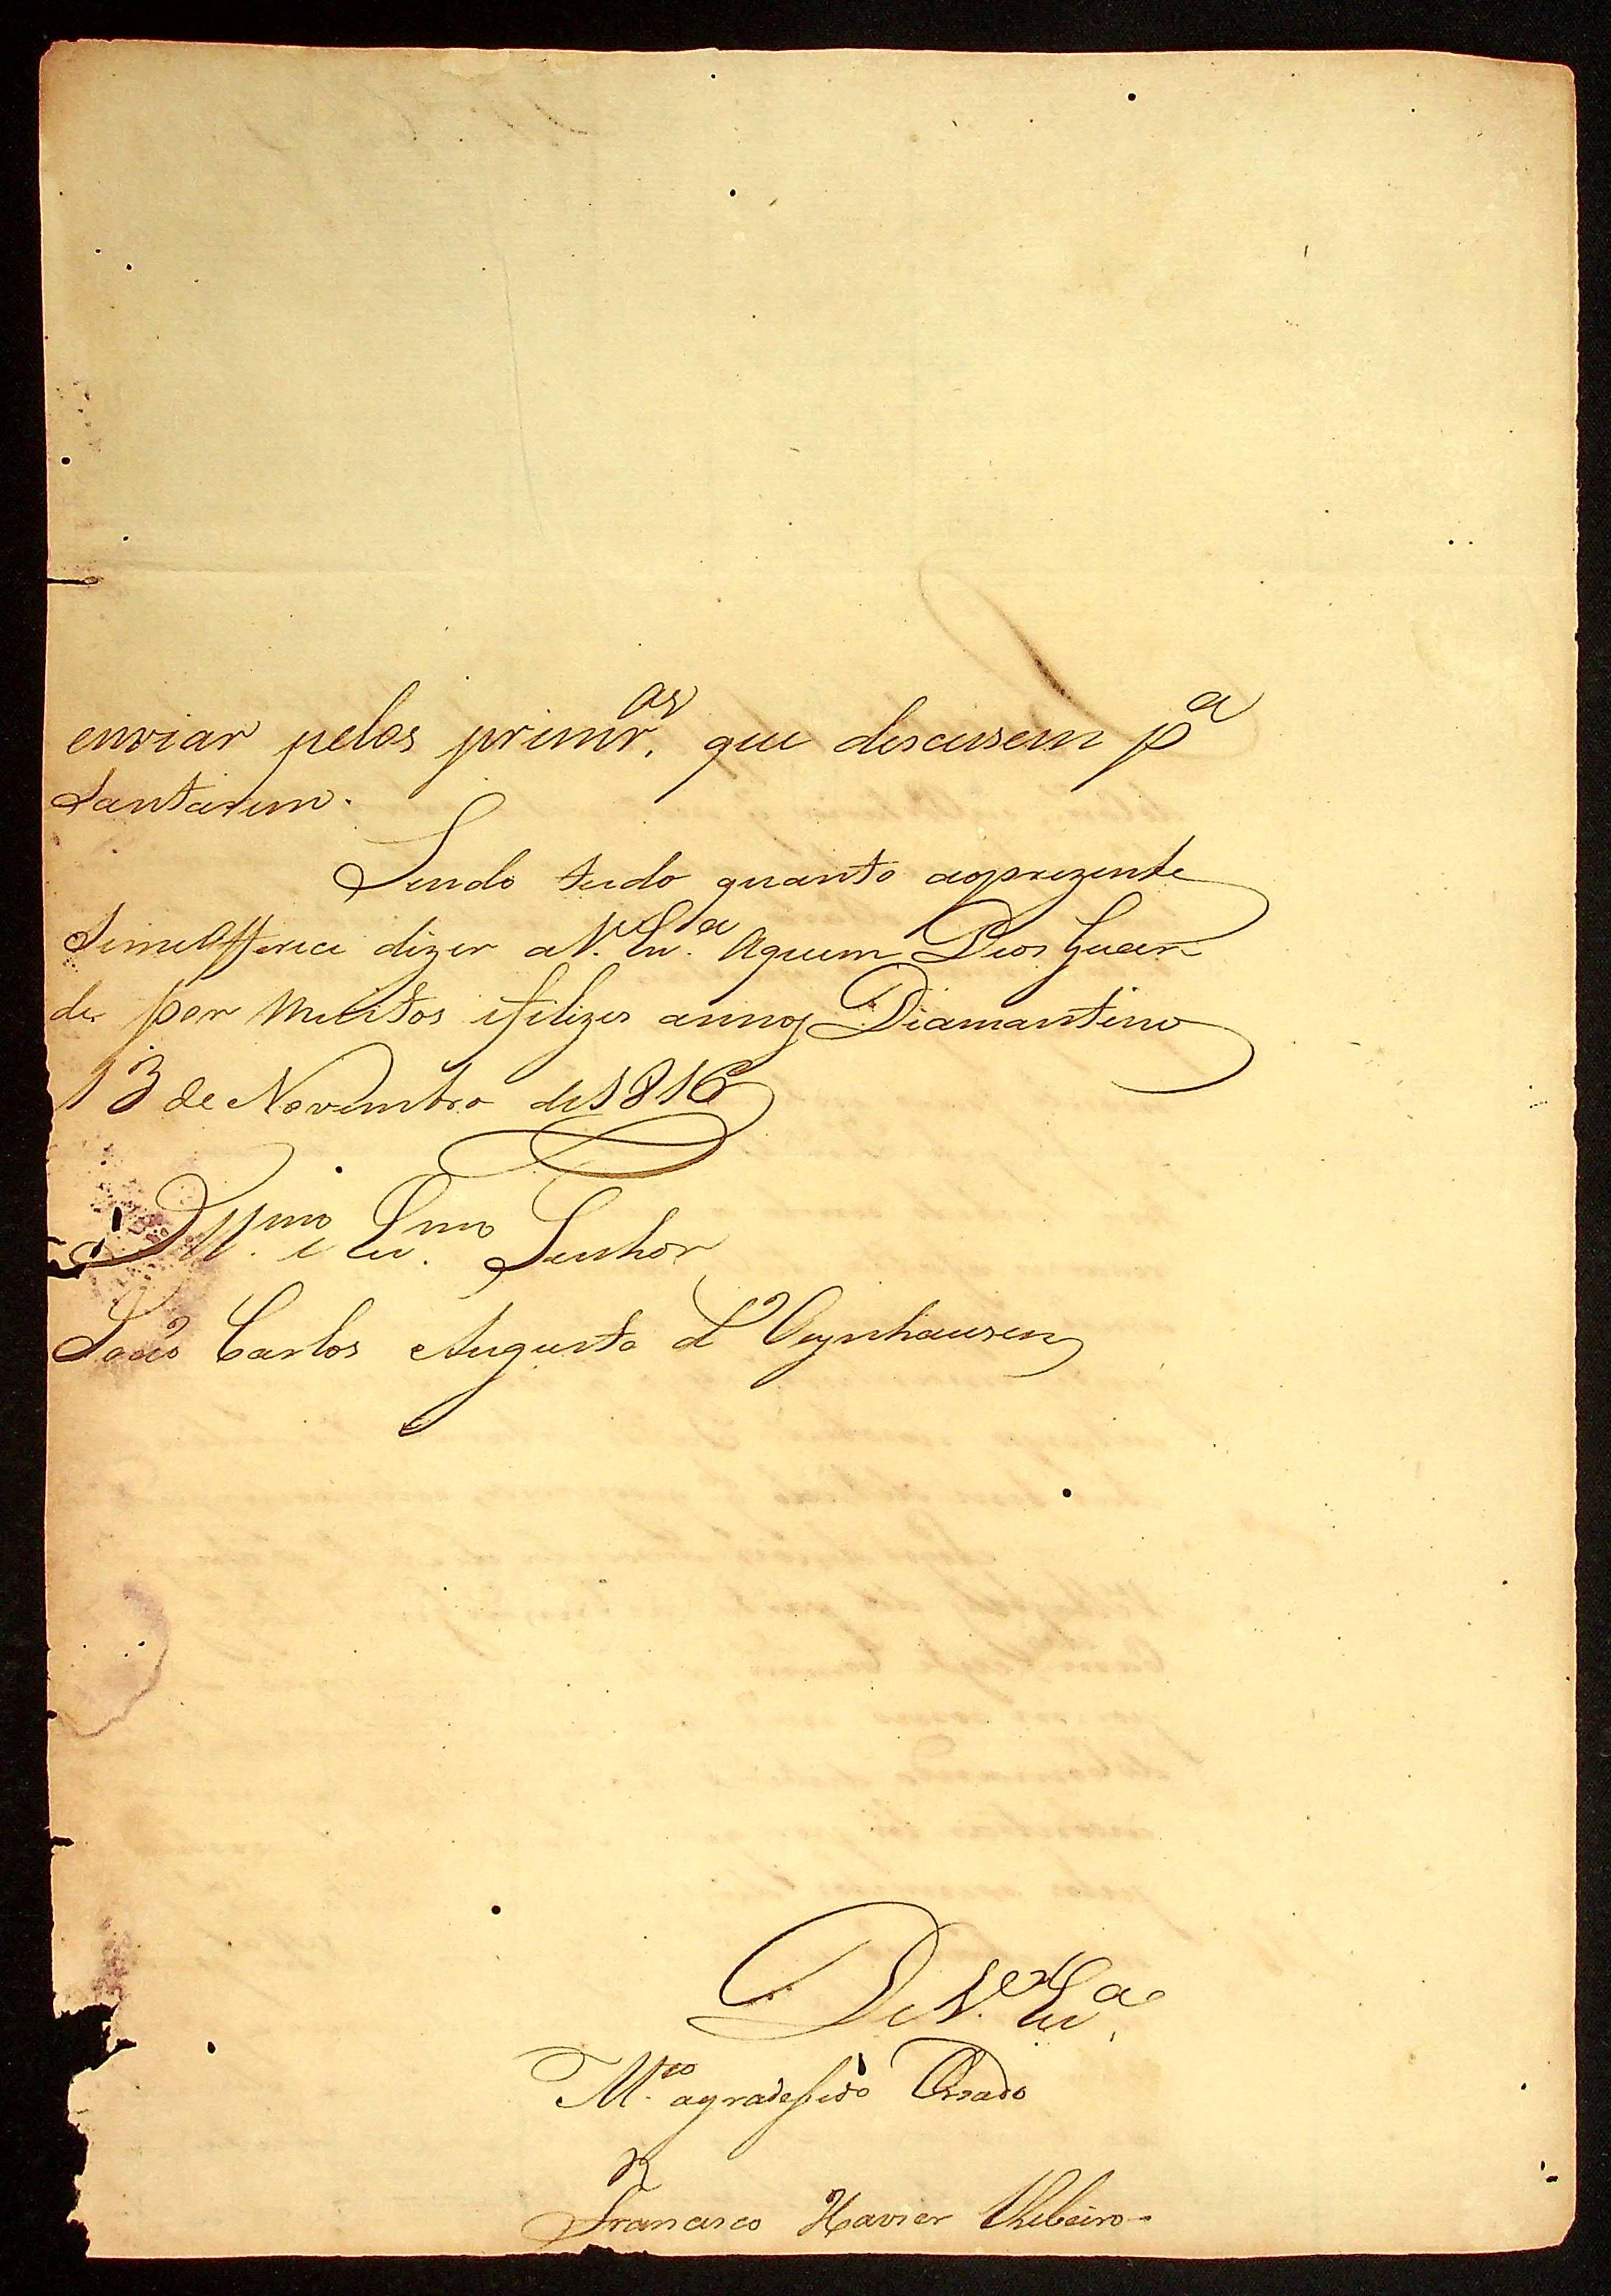 enviar pelos primr.os que descessem p.a
Santarem.
Sendo tudo quanto aoprezente
Semeofferece dizer aV. Ex.a Aquem Deos Guar
de por Muitos efelizes annos Diamantino
13 de Novembro de 1816
Ill.mo e Ex.mo Senhor
João Carlos Augusto d'Oeynhausen
De V. Ex.a
M.to agradesido Criado
Francisco Xavier Ribeiro